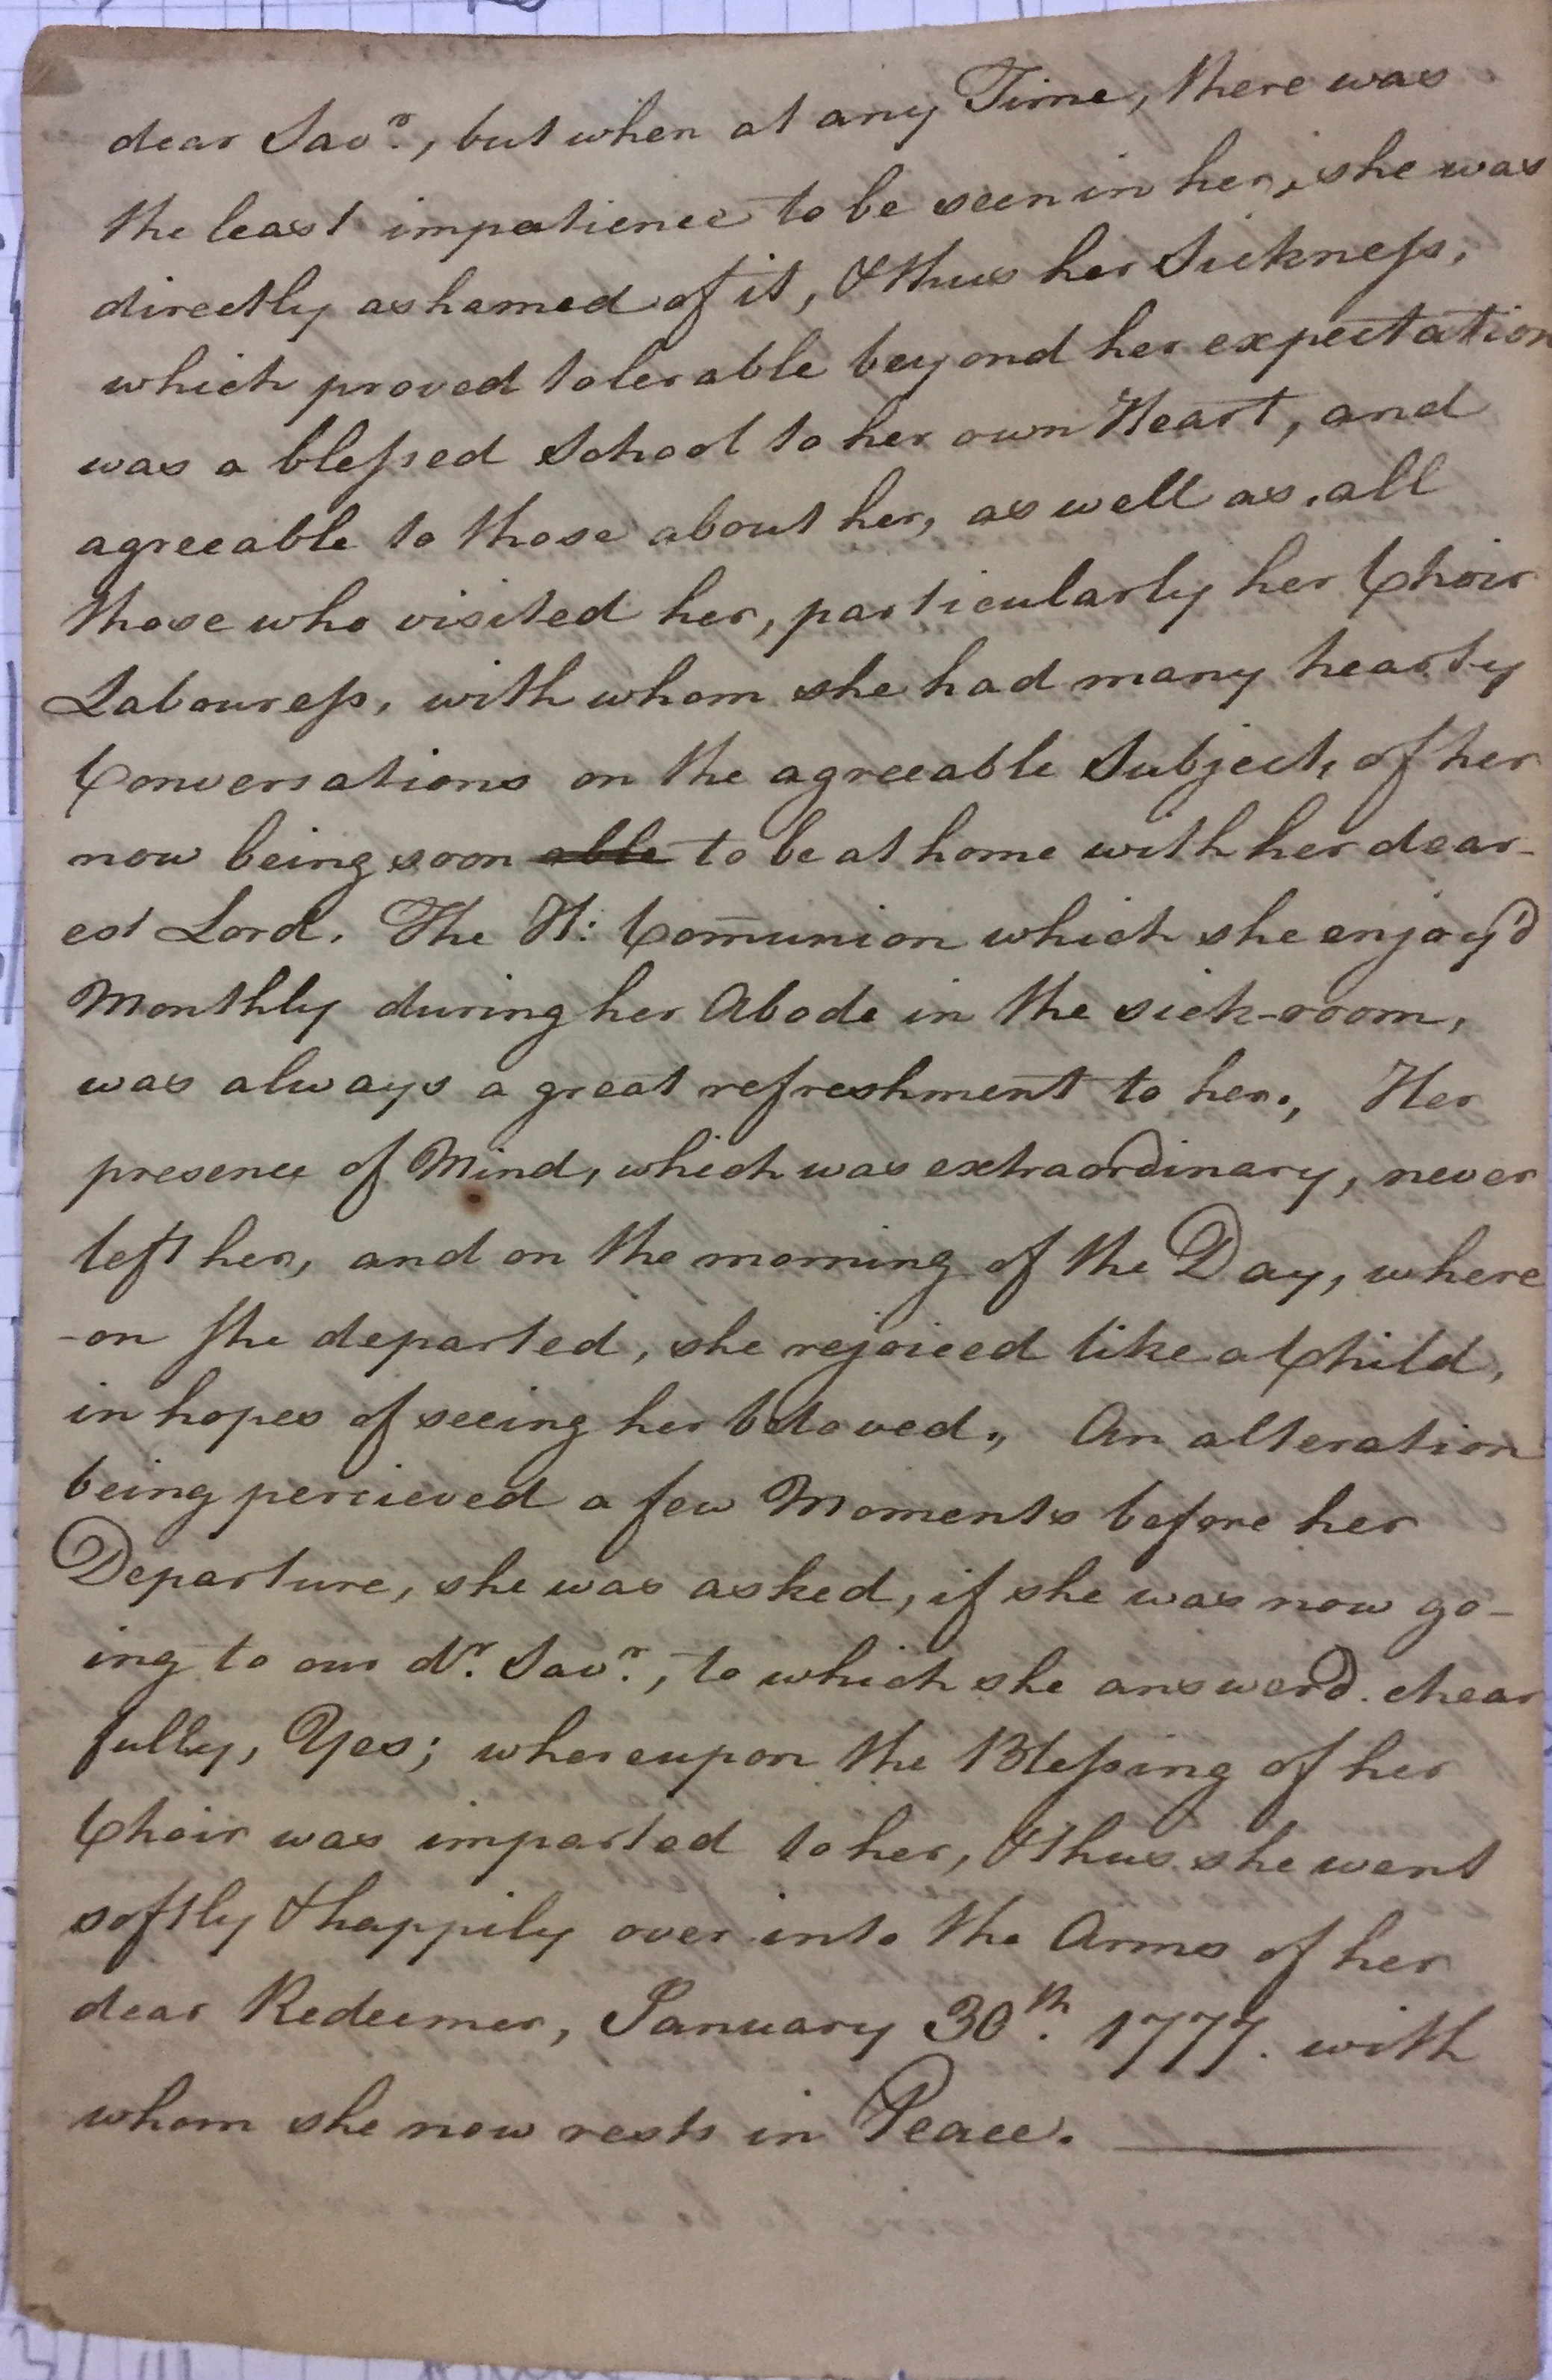 dear Savr., but when at any Time, there was
the least impatience to be seen in her, she was
directly ashamed of it, & thus her Sickneſs,
which proved tolerable beyond her expectation
was a bleſsed School to her own Heart, and
agreeable to those about her, as well as all
those who visited her, particularly her Choir
Laboureſs, with whom she had many hearty
Conversations on the agreeable Subject, of her
now being soon able to be at home with her dear-
est Lord. The H: Com̄union which she enjoy'd
Monthly during her Abode in the sick-room,
was always a great refreshment to her., Her
presence of Mind, which was extraordinary, never
left her, and on the morning of the Day, where
-on she departed, she rejoiced like a Child,
in hopes of seeing her beloved., An alteration
being percieved a few Moments before her
Departure, she was asked, if she was now go-
ing to our dr. Savr., to which she answerd chear
fully, Yes; whereupon the Bleſsing of her
Choir was imparted to her, & thus she went
softly & happily over into the Arms of her
dear Redeemer, January 30th. 1777. with
whom she now rests in Peace.